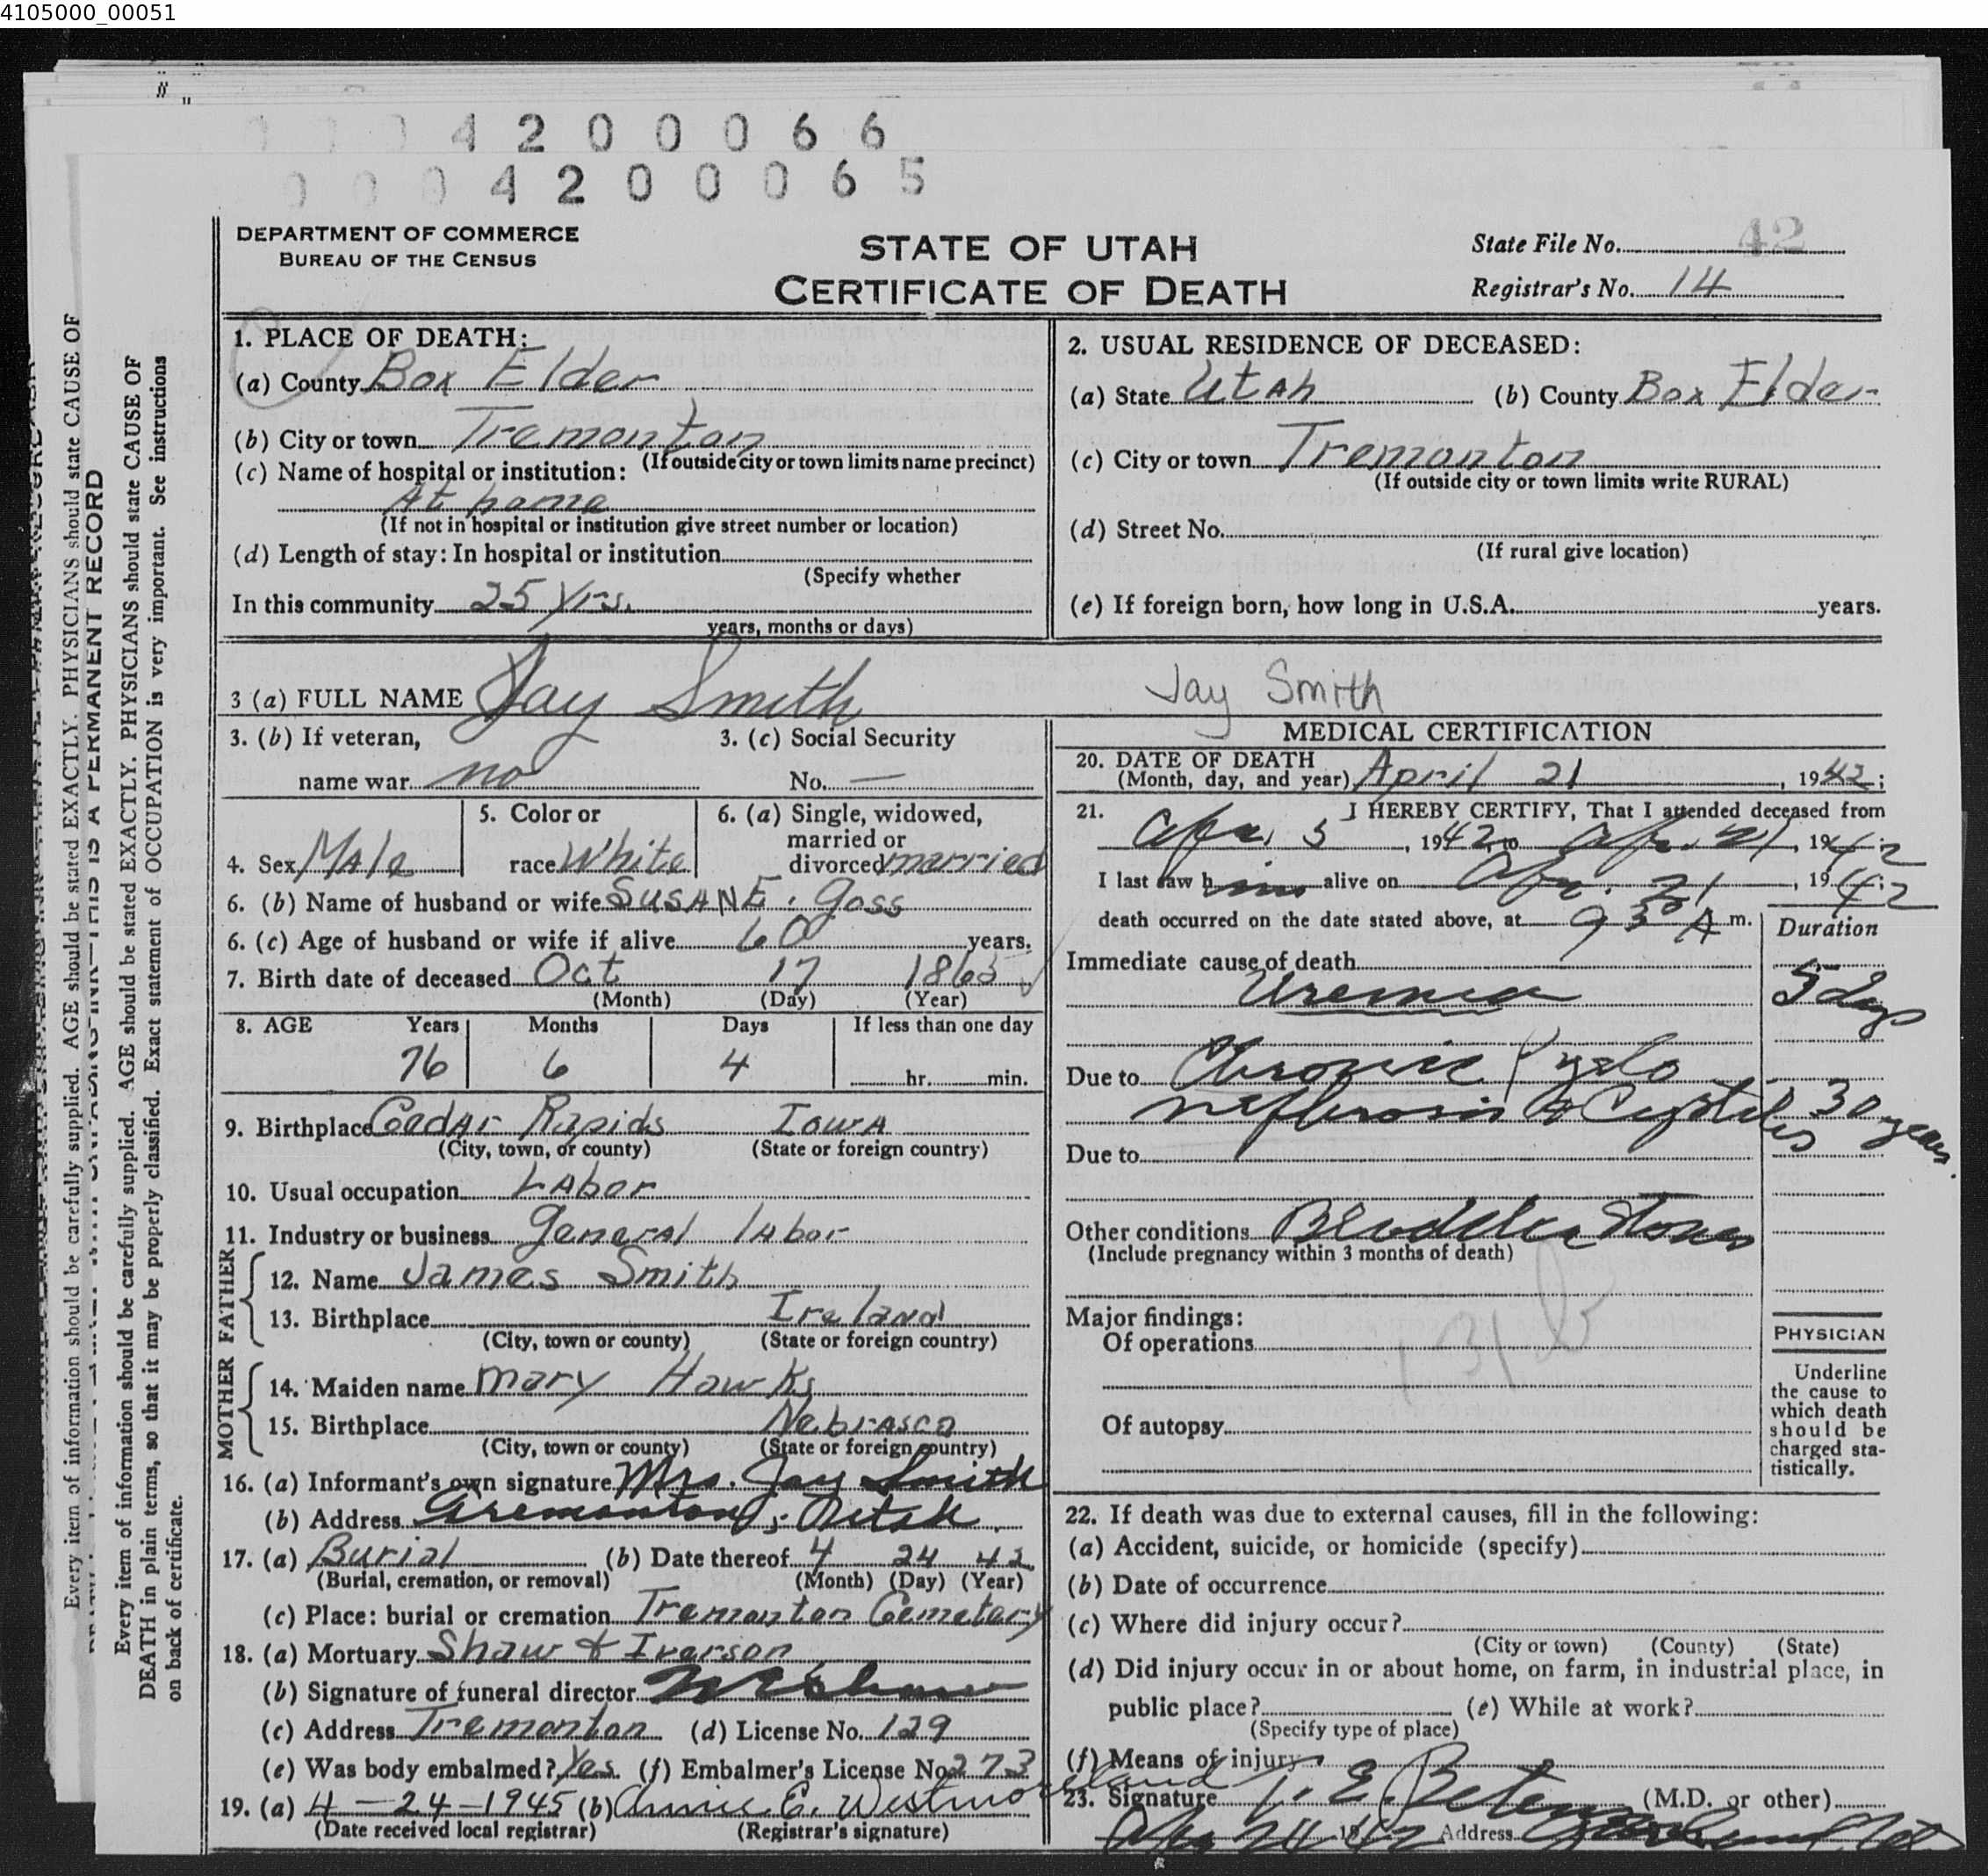 4105000_00051
4 2 0 0 0 6 6
0 0 0 4 2 0 0 0 6 5
DEPARTMENT OF COMMERCE
BUREAU OF THE CENSUS
STATE OF UTAH
CERTIFICATE OF DEATH
State File No. 42
Registrar's No. 14
Every item of information should be carefully supplied. AGE should be stated EXACTLY. PHYSICIANS should state CAUSE OF
THIS IS A PERMANENT RECORD
Every item of information should be carefully supplied. AGE should be stated EXACTLY. PHYSICIANS should state CAUSE OF
DEATH in plain terms, so that it may be properly classified. Exact statement of OCCUPATION is very important. See instructions
on back of certificate.
1. PLACE OF DEATH:
(a) County Box Elder
(b) City or town Tremonton
(If outside city or town limits name precinct)
(c) Name of hospital or institution:
At home
(If not in hospital or institution give street number or location)
(d) Length of stay: In hospital or institution
(Specify whether
In this community 25 yrs.
years, months or days)
2. USUAL RESIDENCE OF DECEASED:
(a) State Utah (b) County Box Elder
(c) City or town Tremonton
(If outside city or town limits write RURAL)
(d) Street No.
(If rural give location)
(e) If foreign born, how long in U.S.A. years.
3 (a) FULL NAME Jay Smith
Jay Smith
3. (b) If veteran,
name war no
3. (c) Social Security
No. —
4. Sex Male
5. Color or
race White
6. (a) Single, widowed,
married or
divorced married
6. (b) Name of husband or wife Susan E. Goss
6. (c) Age of husband or wife if alive 60 years.
7. Birth date of deceased Oct 17 1865
(Month) (Day) (Year)
8. AGE Years Months Days If less than one day
76 6 4 hr. min.
9. Birthplace Cedar Rapids Iowa
(City, town, or county) (State or foreign country)
10. Usual occupation Labor
11. Industry or business general labor
FATHER
12. Name James Smith
13. Birthplace Ireland
(City, town or county) (State or foreign country)
MOTHER
14. Maiden name Mary Hawks
15. Birthplace Nebrasca
(City, town or county) (State or foreign country)
16. (a) Informant's own signature Mrs. Jay Smith
(b) Address Tremonton, Utah
17. (a) Burial (b) Date thereof 4 24 42
(Burial, cremation, or removal) (Month) (Day) (Year)
(c) Place: burial or cremation Tremonton Cemetery
18. (a) Mortuary Shaw & Iverson
(b) Signature of funeral director
(c) Address Tremonton (d) License No. 129
(e) Was body embalmed? Yes. (f) Embalmer's License No. 273
19. (a) 4-24-1945 (b) Annie E. Westmoreland
(Date received local registrar) (Registrar's signature)
MEDICAL CERTIFICATION
20. DATE OF DEATH
(Month, day, and year) April 21, 1942;
21. I HEREBY CERTIFY, That I attended deceased from
Apr. 5, 1942, to Apr. 21, 1942
I last saw him alive on Apr. 21, 1942;
death occurred on the date stated above, at 9 30 A m.
Duration
Immediate cause of death
Uremia 5 days
Due to Chronic Pyelo
nephrosis & Cystitis 30 years.
Due to
Other conditions Bladder Stones
(Include pregnancy within 3 months of death)
Major findings:
Of operations
131b
Of autopsy
PHYSICIAN
Underline
the cause to
which death
should be
charged sta-
tistically.
22. If death was due to external causes, fill in the following:
(a) Accident, suicide, or homicide (specify)
(b) Date of occurrence
(c) Where did injury occur?
(City or town) (County) (State)
(d) Did injury occur in or about home, on farm, in industrial place, in
public place? (e) While at work?
(Specify type of place)
(f) Means of injury
23. Signature (M.D. or other)
19 Address